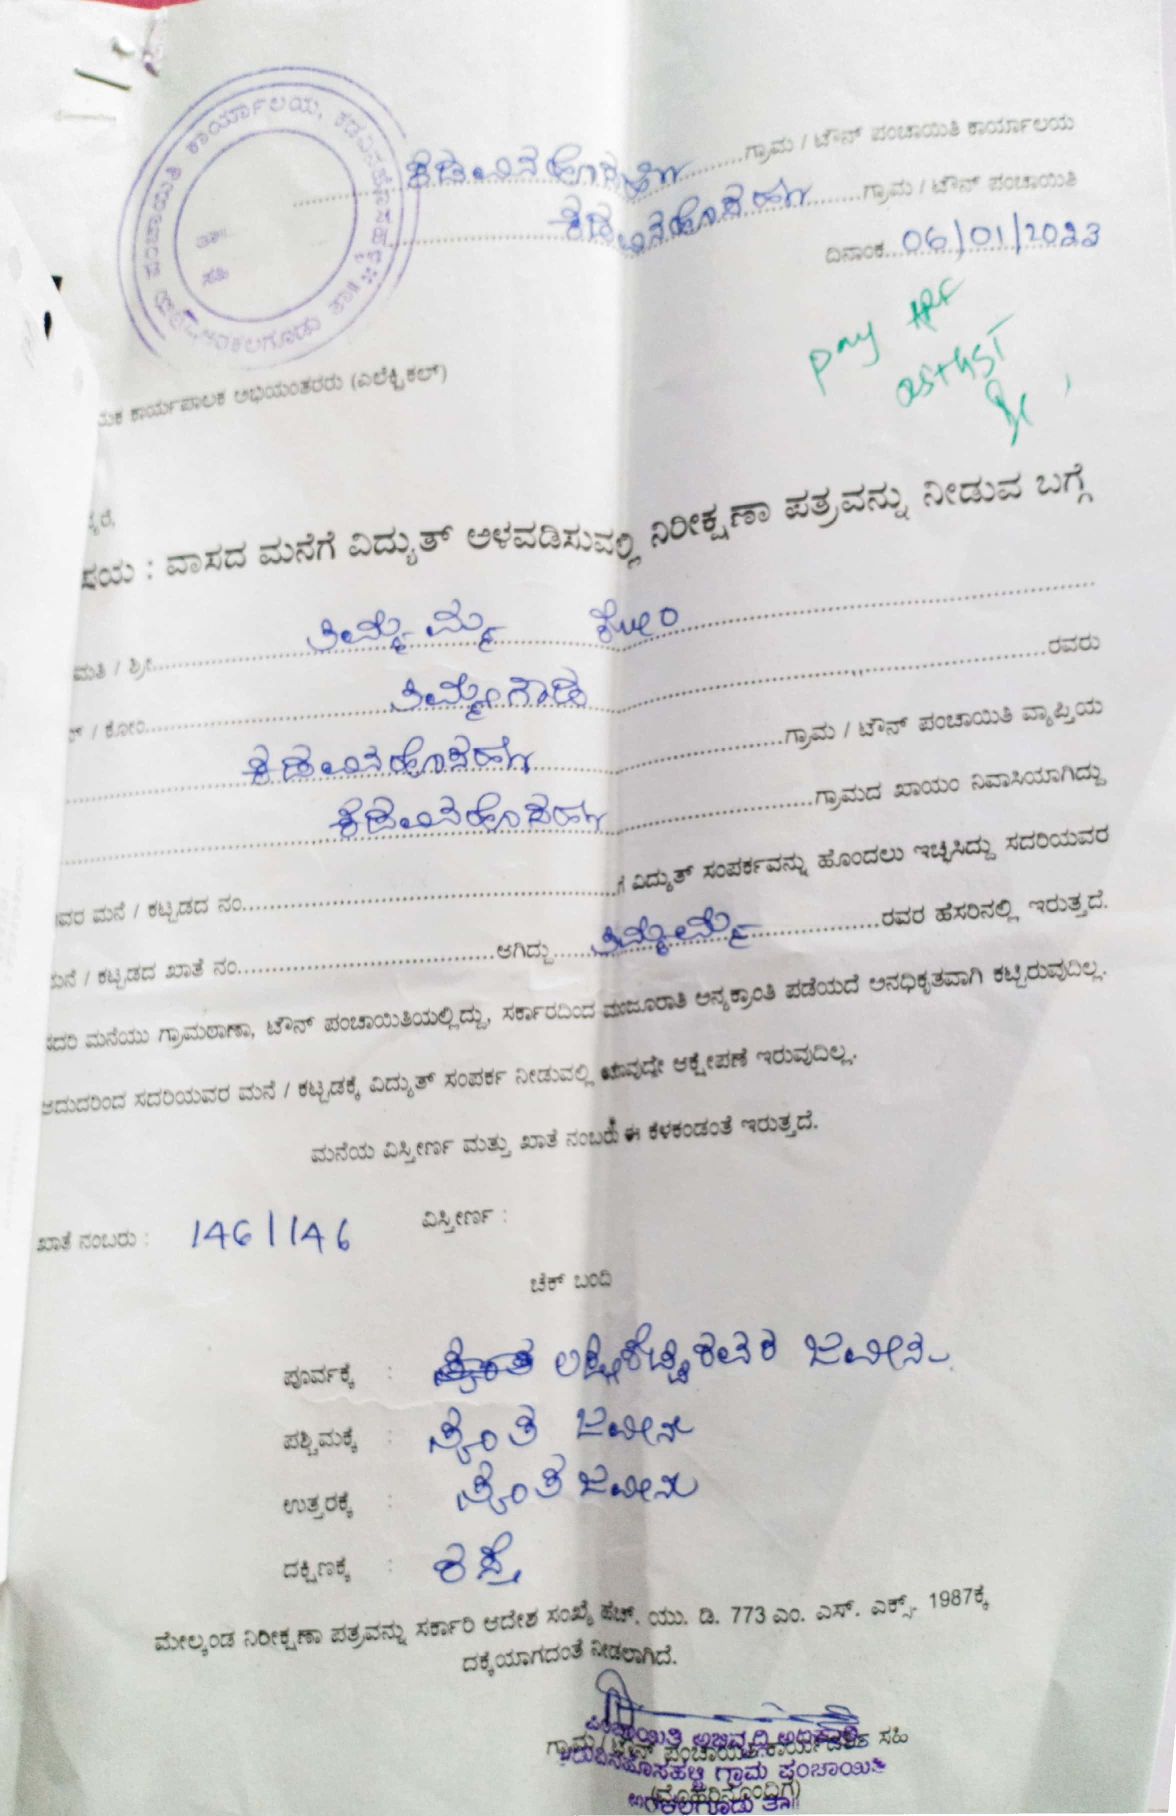 ಪಂಚಾಯಿತಿ ಕಾರ್ಯಾಲಯ, ಕಡುವಿನಹೊಸಹಳ್ಳಿ
ಅರಕಲಗೂಡು ತಾ॥
ಕಡುವಿನಹೊಸಹಳ್ಳಿ ಗ್ರಾಮ / ಟೌನ್ ಪಂಚಾಯಿತಿ ಕಾರ್ಯಾಲಯ
ಕಡುವಿನಹೊಸಹಳ್ಳಿ ಗ್ರಾಮ / ಟೌನ್ ಪಂಚಾಯಿತಿ
ದಿನಾಂಕ 06/01/2023
pay
ಕಾರ್ಯಪಾಲಕ ಅಭಿಯಂತರರು (ಎಲೆಕ್ಟ್ರಿಕಲ್)
ಷಯ : ವಾಸದ ಮನೆಗೆ ವಿದ್ಯುತ್ ಅಳವಡಿಸುವಲ್ಲಿ ನಿರೀಕ್ಷಣಾ ಪತ್ರವನ್ನು ನೀಡುವ ಬಗ್ಗೆ
ಮತಿ / ಶ್ರೀ ತಿಮ್ಮಮ್ಮ ಕೋಂ
/ ಕೋಂ ತಿಮ್ಮೇಗೌಡ ರವರು
ಕಡುವಿನಹೊಸಹಳ್ಳಿ ಗ್ರಾಮ / ಟೌನ್ ಪಂಚಾಯಿತಿ ವ್ಯಾಪ್ತಿಯ
ಕಡುವಿನಹೊಸಹಳ್ಳಿ ಗ್ರಾಮದ ಖಾಯಂ ನಿವಾಸಿಯಾಗಿದ್ದು
ವರ ಮನೆ / ಕಟ್ಟಡದ ನಂ. ಗೆ ವಿದ್ಯುತ್ ಸಂಪರ್ಕವನ್ನು ಹೊಂದಲು ಇಚ್ಛಿಸಿದ್ದು ಸದರಿಯವರ
ಮನೆ / ಕಟ್ಟಡದ ಖಾತೆ ನಂ. ಆಗಿದ್ದು ತಿಮ್ಮಮ್ಮ ರವರ ಹೆಸರಿನಲ್ಲಿ ಇರುತ್ತದೆ.
ಸದರಿ ಮನೆಯು ಗ್ರಾಮಠಾಣಾ, ಟೌನ್ ಪಂಚಾಯಿತಿಯಲ್ಲಿದ್ದು, ಸರ್ಕಾರದಿಂದ ಮಂಜೂರಾತಿ ಅನ್ಯಕ್ರಾಂತಿ ಪಡೆಯದೆ ಅನಧಿಕೃತವಾಗಿ ಕಟ್ಟಿರುವುದಿಲ್ಲ.
ಆದುದರಿಂದ ಸದರಿಯವರ ಮನೆ / ಕಟ್ಟಡಕ್ಕೆ ವಿದ್ಯುತ್ ಸಂಪರ್ಕ ನೀಡುವಲ್ಲಿ ಯಾವುದೇ ಆಕ್ಷೇಪಣೆ ಇರುವುದಿಲ್ಲ.
ಮನೆಯ ವಿಸ್ತೀರ್ಣ ಮತ್ತು ಖಾತೆ ನಂಬರು ಈ ಕೆಳಕಂಡಂತೆ ಇರುತ್ತದೆ.
ಖಾತೆ ನಂಬರು : 146/146 ವಿಸ್ತೀರ್ಣ :
ಚೆಕ್ ಬಂದಿ
ಪೂರ್ವಕ್ಕೆ : ಜಮೀನು
ಪಶ್ಚಿಮಕ್ಕೆ : ಸ್ವಂತ ಜಮೀನು
ಉತ್ತರಕ್ಕೆ : ಸ್ವಂತ ಜಮೀನು
ದಕ್ಷಿಣಕ್ಕೆ : ರಸ್ತೆ
ಮೇಲ್ಕಂಡ ನಿರೀಕ್ಷಣಾ ಪತ್ರವನ್ನು ಸರ್ಕಾರಿ ಆದೇಶ ಸಂಖ್ಯೆ ಹೆಚ್. ಯು. ಡಿ. 773 ಎಂ. ಎಸ್. ಎಕ್ಸ್. 1987ಕ್ಕೆ
ದಕ್ಕೆಯಾಗದಂತೆ ನೀಡಲಾಗಿದೆ.
ಪಂಚಾಯಿತಿ ಅಭಿವೃದ್ಧಿ ಅಧಿಕಾರಿ
ಗ್ರಾಮ / ಟೌನ್ ಪಂಚಾಯಿತಿ ಕಾರ್ಯದರ್ಶಿ ಸಹಿ
ಕಡುವಿನಹೊಸಹಳ್ಳಿ ಗ್ರಾಮ ಪಂಚಾಯಿತಿ
(ಮೊಹರಿನೊಂದಿಗೆ)
ಅರಕಲಗೂಡು ತಾ॥